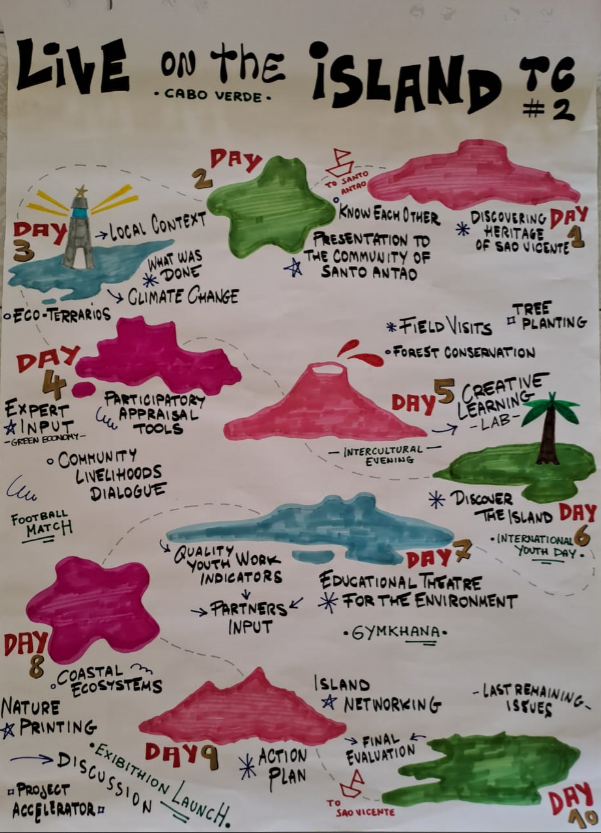 LIVE ON THE ISLAND TC
• CABO VERDE •
#2
DAY
1
DISCOVERING
HERITAGE
OF SAO VICENTE
TO SANTO
ANTAO
DAY
2
KNOW EACH OTHER
PRESENTATION TO
THE COMMUNITY OF
SANTO ANTAO
DAY
3
LOCAL CONTEXT
WHAT WAS
DONE
CLIMATE CHANGE
ECO-TERRARIOS
DAY
4
EXPERT
INPUT
-GREEN ECONOMY-
PARTICIPATORY
APPRAISAL
TOOLS
COMMUNITY
LIVELIHOODS
DIALOGUE
FOOTBALL
MATCH
FIELD VISITS
TREE
PLANTING
FOREST CONSERVATION
DAY 5
CREATIVE
LEARNING
-LAB-
- INTERCULTURAL
EVENING -
DISCOVER
THE ISLAND
DAY
6
• INTERNATIONAL
YOUTH DAY •
DAY 7
QUALITY
YOUTH WORK
INDICATORS
PARTNERS
INPUT
EDUCATIONAL THEATRE
FOR THE ENVIRONMENT
• GYMKHANA •
DAY
8
COASTAL
ECOSYSTEMS
NATURE
PRINTING
DISCUSSION
PROJECT
ACCELERATOR
• EXIBITHION LAUNCH.
DAY 9
ACTION
PLAN
ISLAND
NETWORKING
FINAL
EVALUATION
TO
SAO VICENTE
- LAST REMAINING
ISSUES -
DAY
10